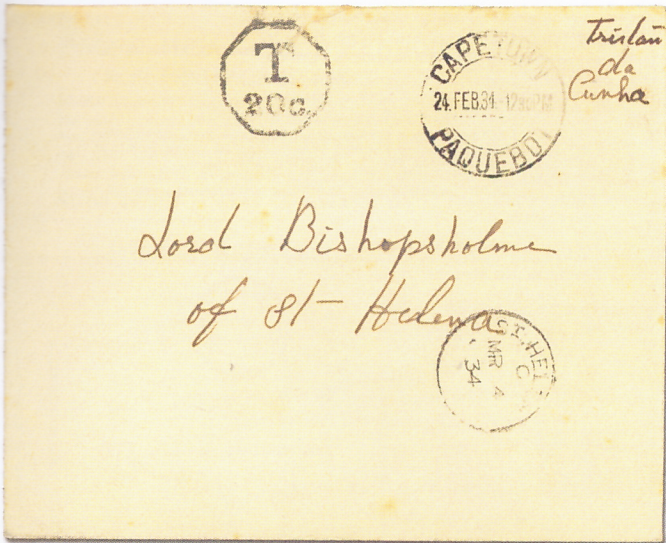 T
20c.
CAPETOWN
24.FEB34 12 PM
PAQUEBOT
Tristan
da
Cunha
Lord Bishopsholme
of St Helena
ST. HEL
C
MR 4
34